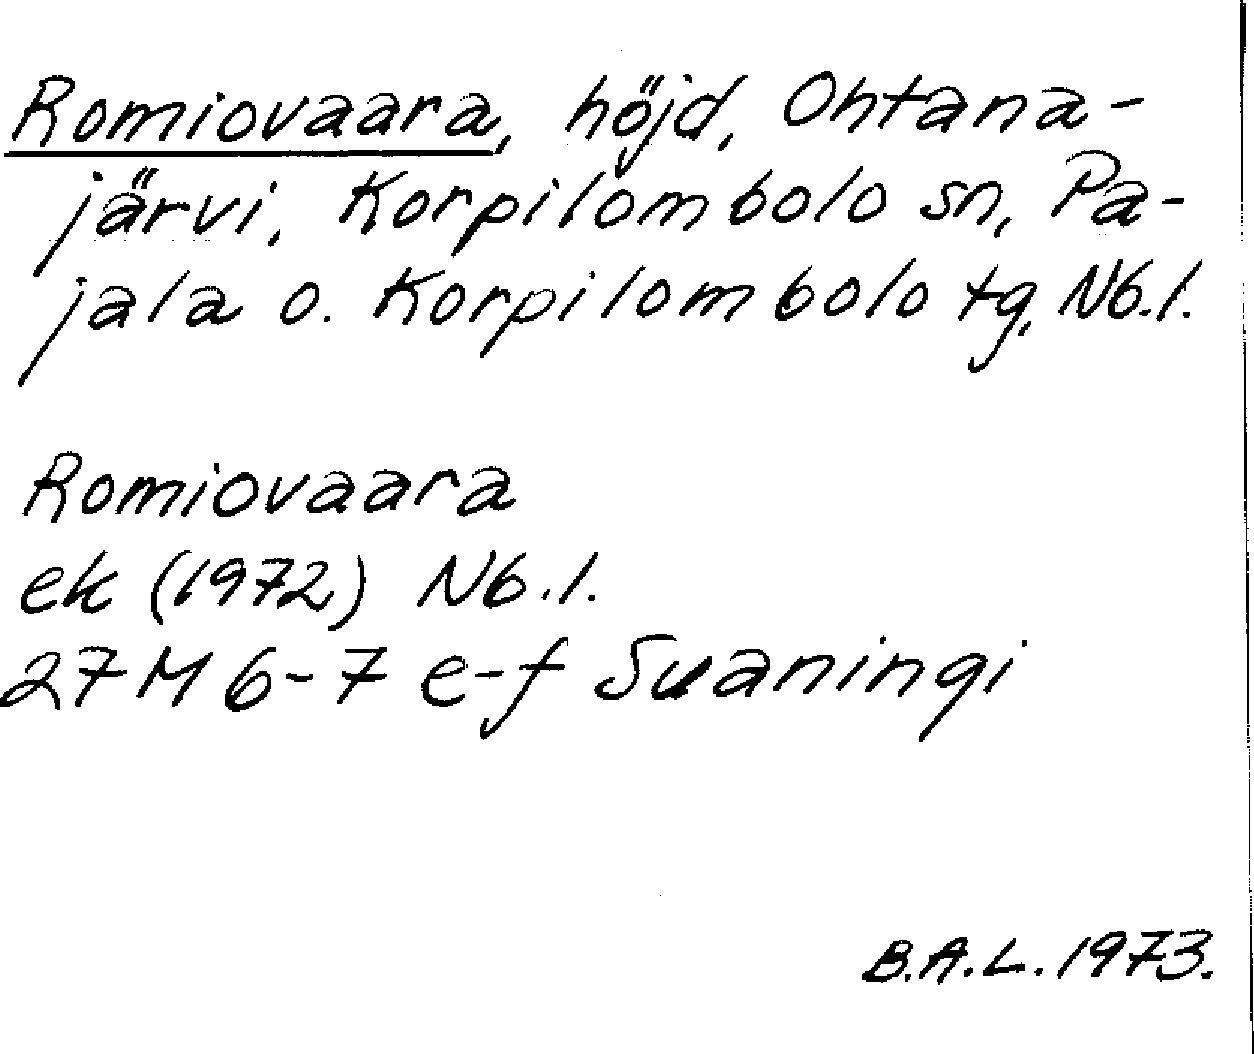 Romiovaara, höjd, Ohtana-
järvi, Korpilombolo sn, Pa-
jala o. Korpilombolo tg, Nb.l.
Romiovaara
ek (1972) Nb.l.
27M 6-7 e-f Suaningi
B.A.L. 1973.